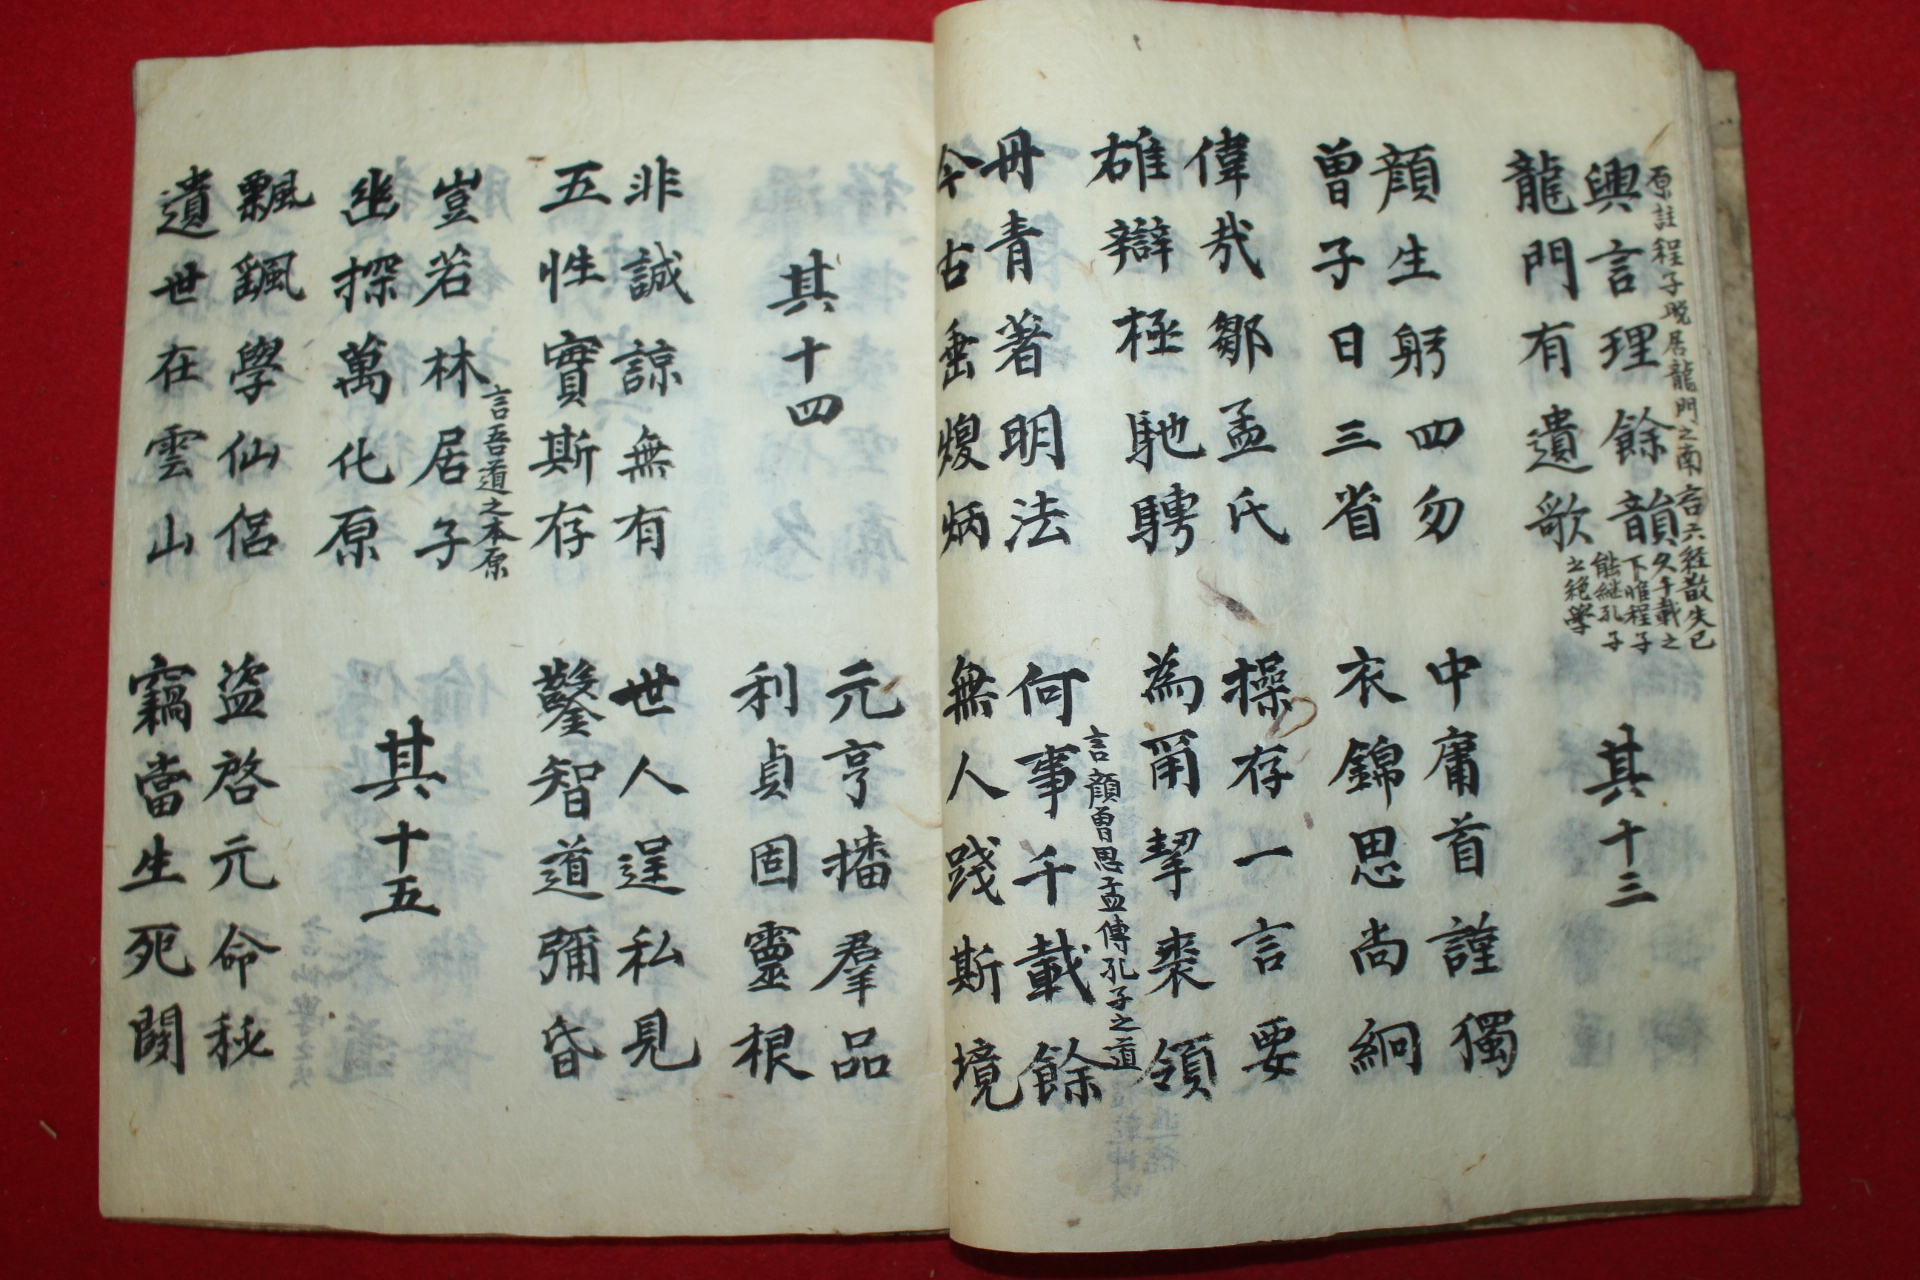 原註程子晚居龍門之南
興言理餘韻
龍門有遺歌
言六経散失已
久千載之
下惟程子
能継孔子
之絶學
其十三
顔生躬四勿
曾子日三省
中庸首謹獨
衣錦思尚絅
偉哉鄒孟氏
雄辯極馳騁
操存一言要
為爾挈裘領
言顔曾思孟傳孔子之道
丹青著明法
今古垂煥炳
何事千載餘
無人踐斯境
其十四
元亨播羣品
利貞固靈根
非誠諒無有
五性實斯存
世人逞私見
鑿智道彌昏
言吾道之本原
豈若林居子
幽探萬化原
其十五
飄颻學仙侶
遺世在雲山
盜啓元命秘
竊當生死関